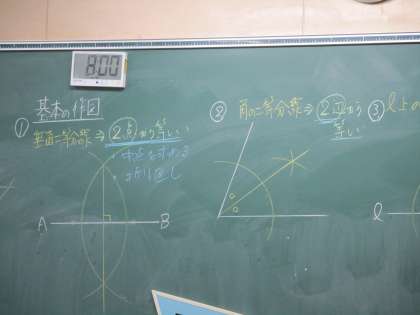 8:00
基本の作図
① 垂直二等分線⇒2点から等しい
・中点を求める
・折り返し
A B
② 角の二等分線⇒2辺から
等しい
③ l上の
l